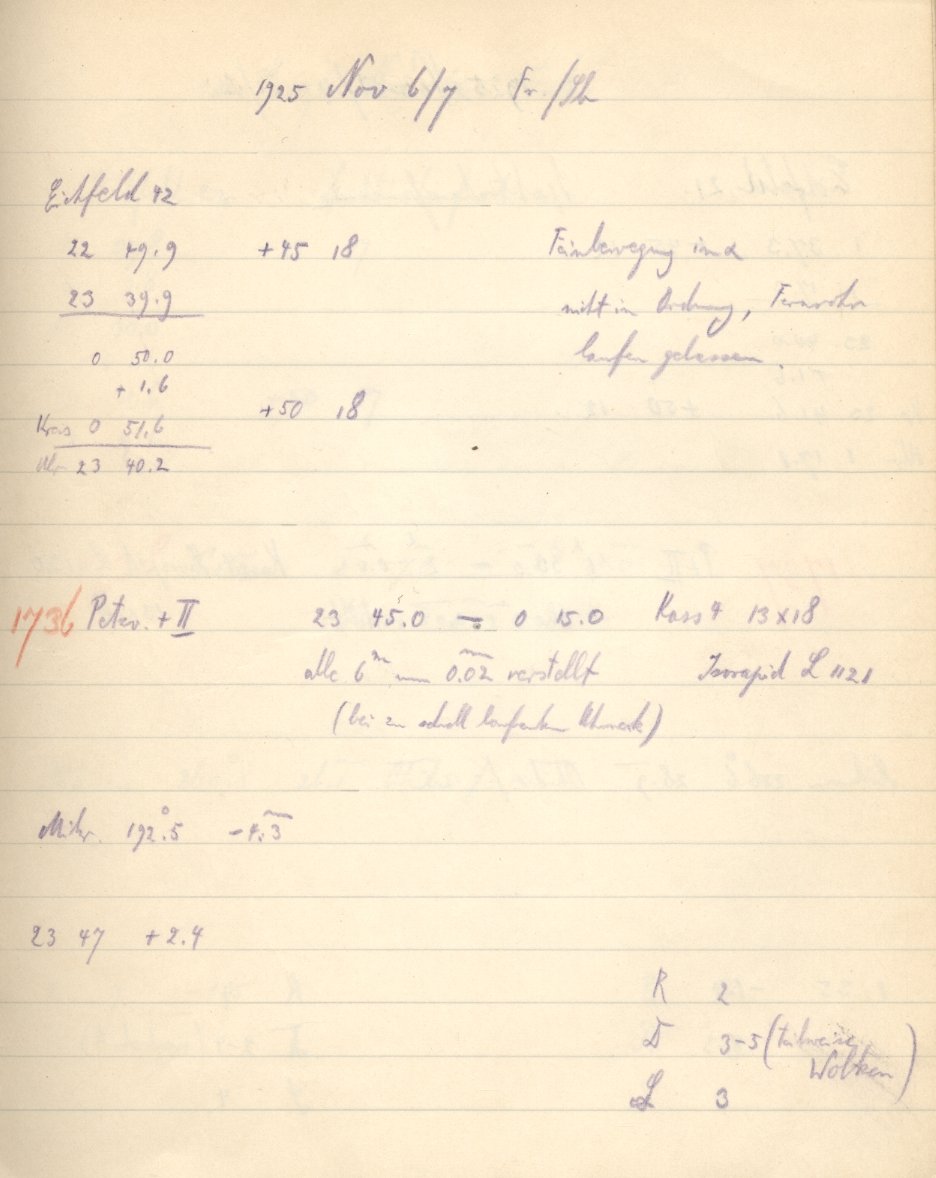 1925 Nov 6/7 Fr./Sb
Eichfeld 42
22 49.9 +45 18 Feinbewegung in α
23 39.9 nicht in Ordnung, Fernrohr
0 50.0 laufen gelassen.
+ 1.6
+50 18
0 51.6
Uhr 23 40.2
1736 Petzv. + II 23 45.0 – 0 15.0 Kass 4 13x18
alle 6ᵐ um 0.02ᵐ verstellt Isorapid L 1121
(bei zu schnell laufendem Uhrwerk)
Mikr. 192°.5 -4.3
23 47 +2.4
R 2
D 3-5 (teilweise
Wolken)
L 3